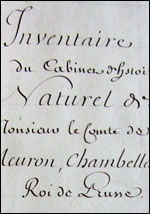 Inventaire
du Cabinet d'histoi
Naturel de
Monsieur le Comte de
Meuron, Chambella
Roi de Prusse.